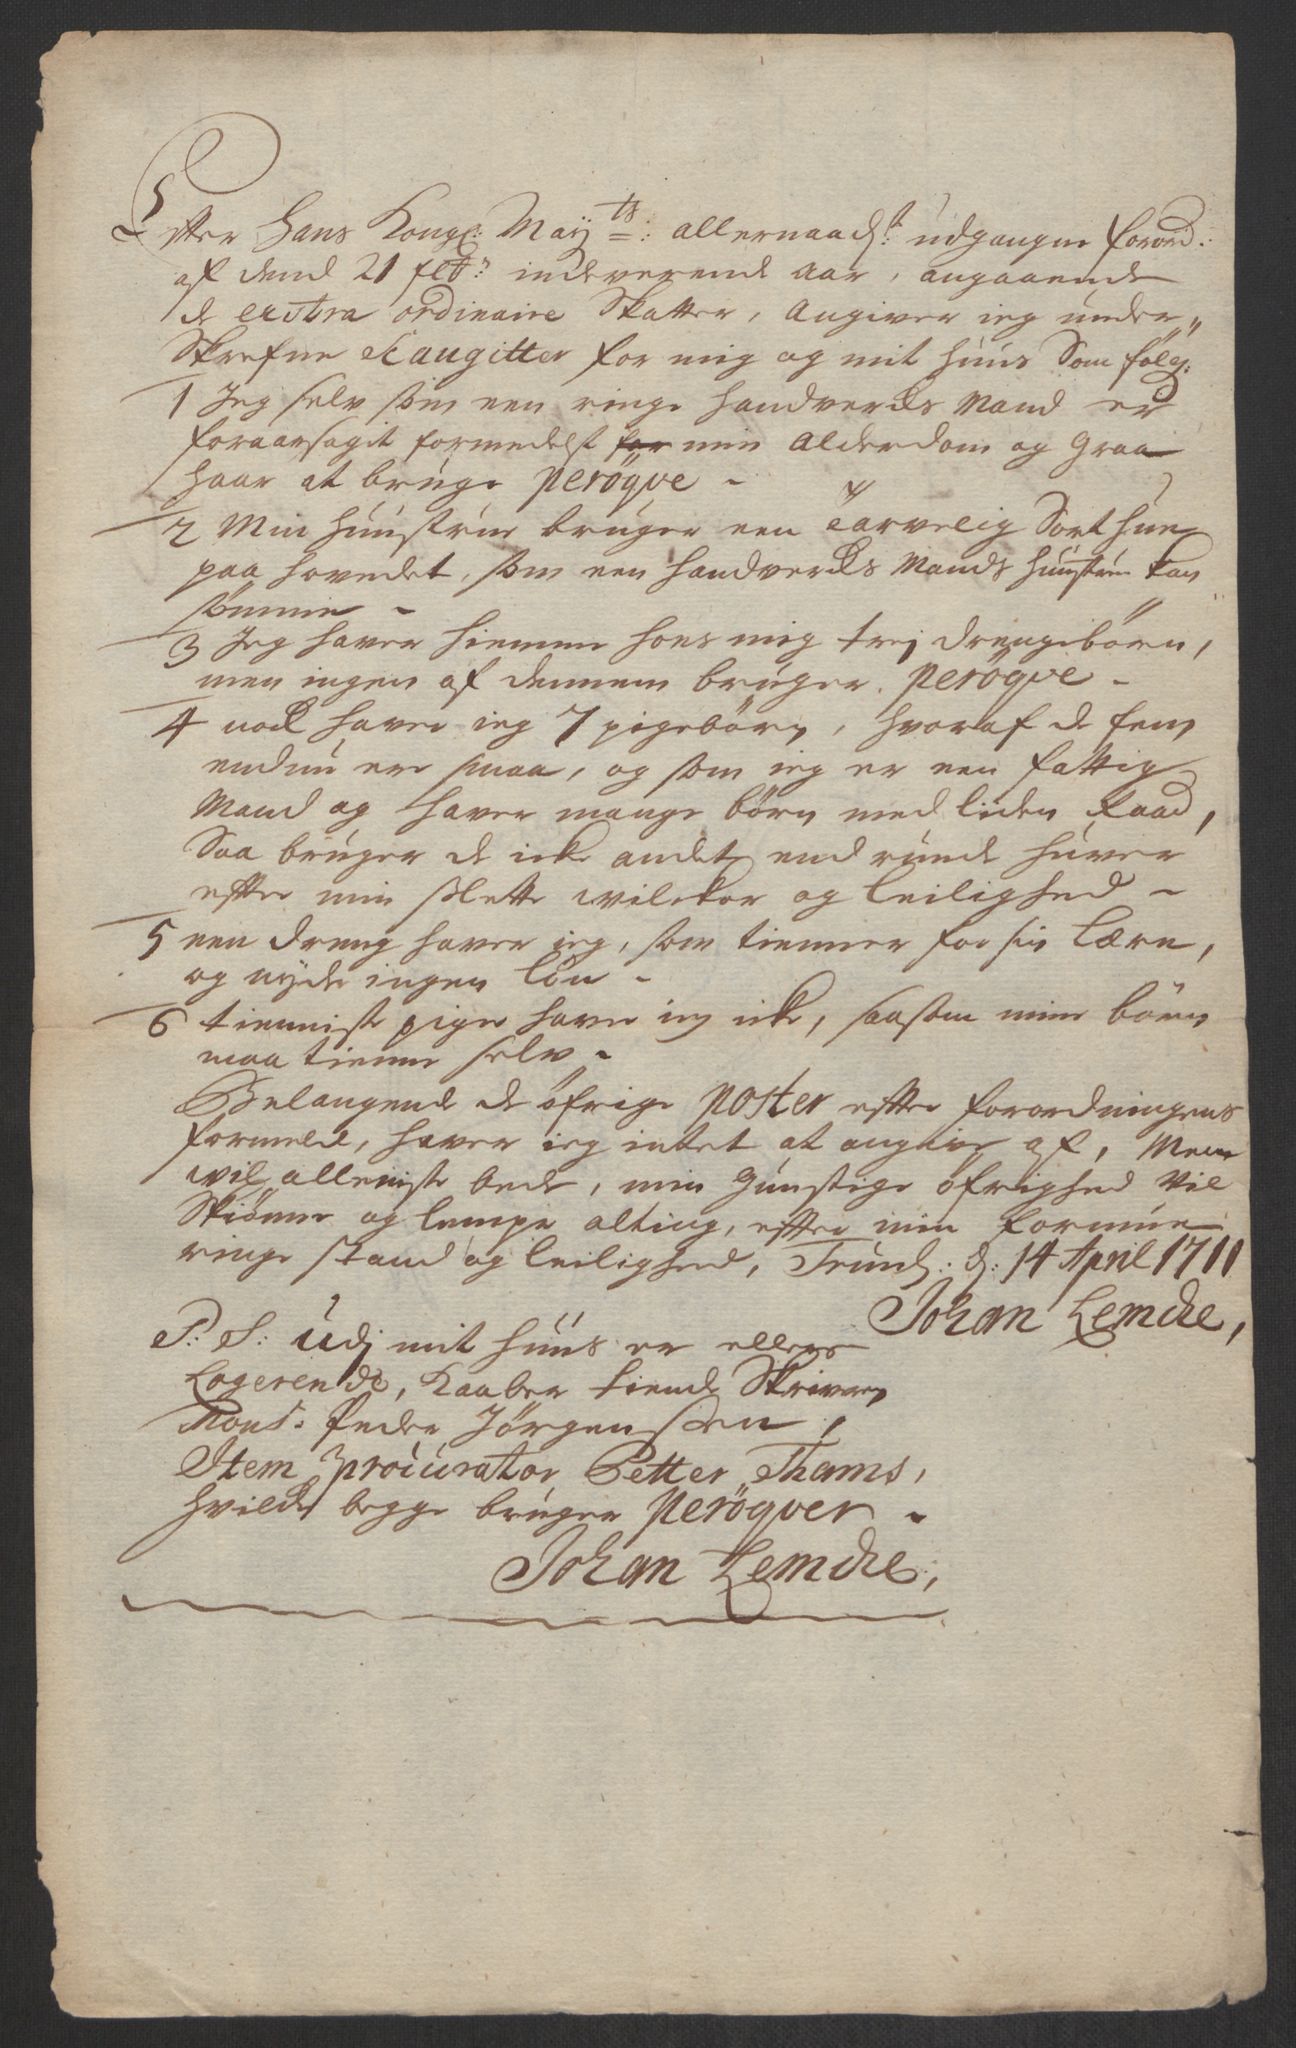 Efter Hans Kongl: Mayts: allernaadst: udgangne forord:
af dend 21 feb: indeverende aar, angaaende
de extra ordinaire Skatter, angiver ieg under„
Skrefne for mig og mit huus Som følg:
1 Jeg selv som een ringe handvercks Mand er
foraarsagit formedelst for min Alderdom og Graa
haar at bruge peröqve -
2 Min huustrue bruger een tarvelig Sort hue
paa hovedet, som een handvercks Mands huustrue kan
sømme -
3 Jeg haver hiemme hoes mig trej drengebörn,
men ingen af dennem bruger peröqve -
4 nock haver ieg 7 pigebörn, hvoraf de fem
endnu ere smaa, og som ieg er een fattig
Mand og haver mange börn med liden Raad,
Saa bruger de icke andet end runde huver
efter min slette wilckor og leilighed -
5 een dreng haver ieg, som tienner for sin Lære,
og nyder ingen løn -
6 tienniste piger haver ieg icke, saasom mine börn
maa tienne selv -
Belangende de öfrige poster efter forordningens
formeld, haver ieg intet at angive af, Men
wil alleniste bede, min gunstige öfrighed vil
Skiönne og lempe alting, efter min formue
ringe stand og leilighed, Trundh: d: 14 April 1711
Johan Lemcke,
P: S: Udj mit huus er ellers
Logerende, Kaaber tiende Skriver
Mons: Peder Jörgenssen,
Item procurator Petter Thams,
hvilcke begge bruger peröqver -
Johan Lemcke,